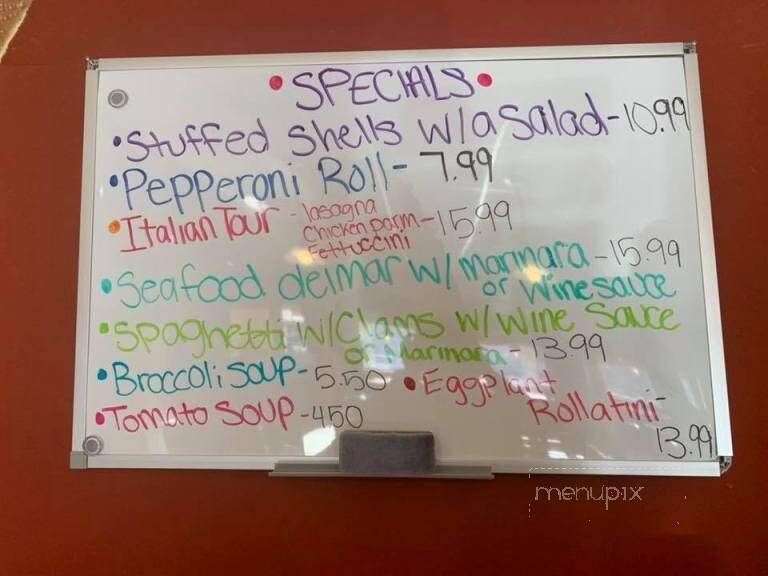 •SPECIALS•
•Stuffed shells w/a salad-10.99
•Pepperoni Roll- 7.99
•Italian Tour - lasagna
Chicken parm-15.99
Fettuccini
•Seafood delmar w/ marinara -15.99
or wine sauce
•Spaghetti w/Clams w/ wine Sauce
or Marinara- 13.99
•Broccoli soup-5.50
•Eggplant
Rollatini-
13.99
•Tomato soup-450
menupix